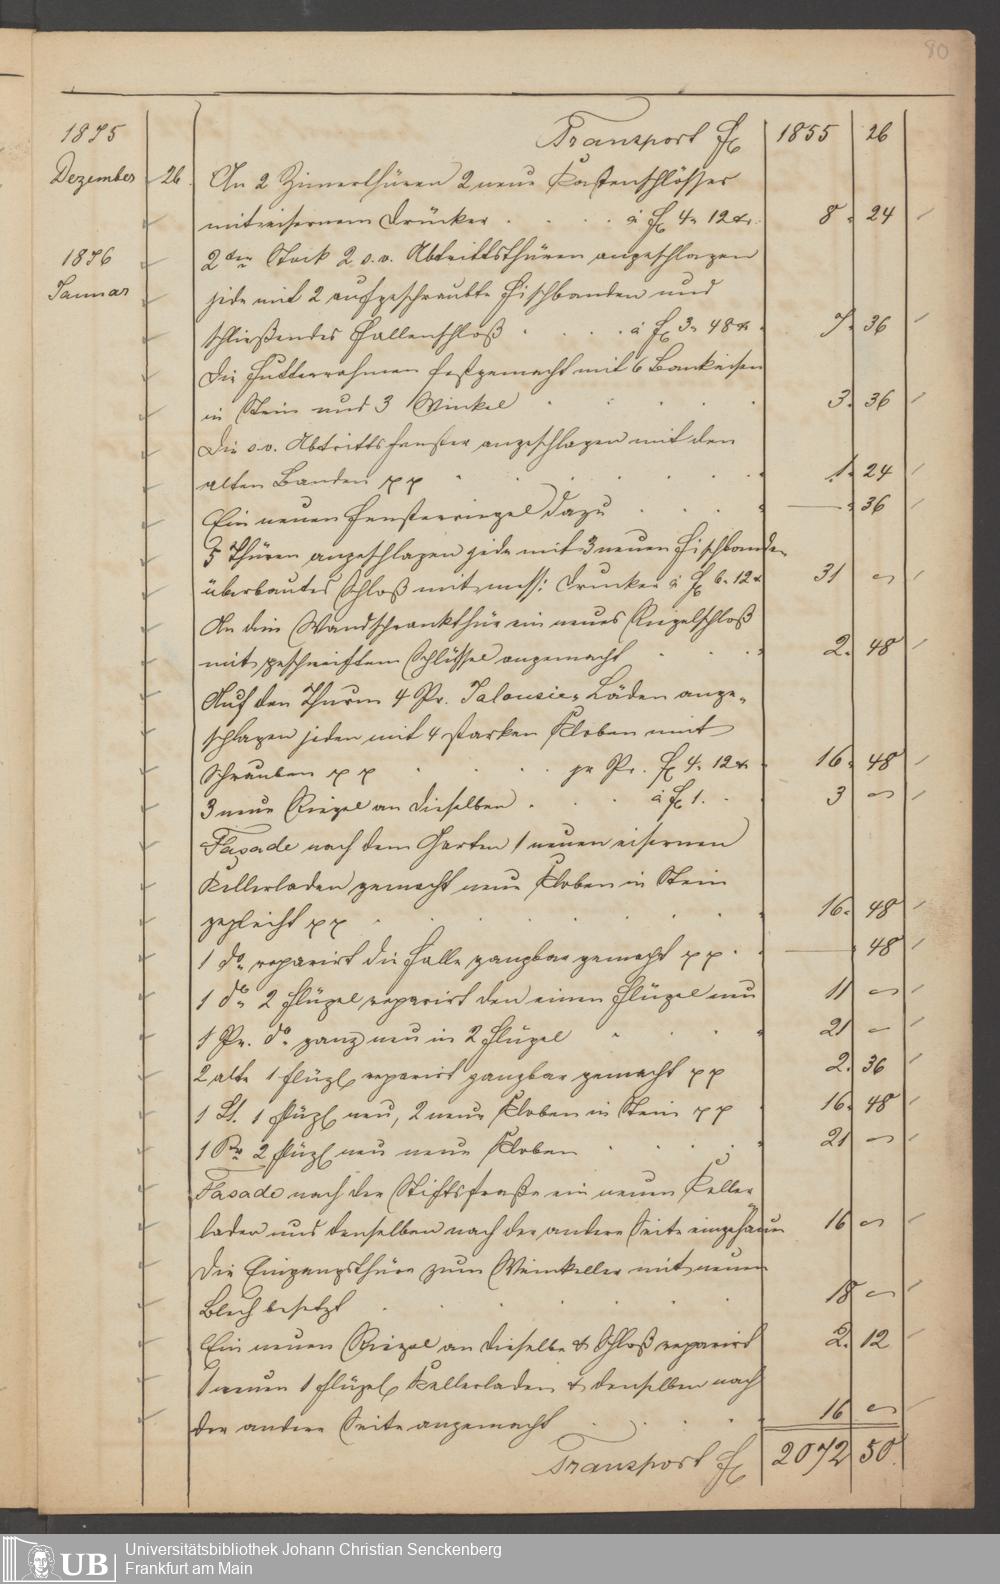 80
1875 Transport fl 1855 26
Dezember 26. An 2 Zimerthüren 2 neue Kastenschlösser
mit eisernem Drücker . . . . à fl 4 „ 12 xr. 8 „ 24
1876 2ten Stock 2 s. v. Abtrittsthüren angeschlagen
Januar jede mit 2 aufgeschraubte Fischbanden und
schließendes Fallenschloß . . . . à fl 3 „ 48 xr. 7 „ 36
Die Futterrahmen festgemacht mit 6 Bankeisen
in Stein und 3 Winkel . . . . . 3 „ 36
Die s. v. Abtrittsfenster angeschlagen mit den
alten Banden pp . . . . . . . 1 „ 24
Ein neuen Fensterriegel dazu . . . . — „ 36
5 Thüren angeschlagen jede mit 3 neuen Fischbanden
überbautes Schloß mit mess: Drucker à fl 6 „ 12 xr 31 —
An die Wandschrankthür ein neues Riegelschloß
mit geschweiftem Schlüssel angemacht . . . . 2 „ 48
Auf den Thurm 4 Pr. Jalousie „ Läden ange„
schlagen jeden mit 4 starken Kloben mit
Schrauben pp . . . . pr Pr. fl 4 „ 12 xr 16 „ 48
3 neue Riegel an dieselben . . . . à fl 1. . . 3 —
Façade nach dem Garten 1 neuen eisernen
Kellerladen gemacht neue Kloben in Stein
gegleicht pp . . . . . . . . 16 „ 48
1 do. reparirt die Falle gangbar gemacht pp . . — „ 48
1 do. 2 Flügel reparirt den einen Flügel neu 11 —
1 Pr. do. ganz neu in 2 Flügel . . . . 21 —
2 alte 1 flügl. reparirt gangbar gemacht pp 2 „ 36
1 St. 1 flügl. neu, 2 neue Kloben in Stein pp . 16 „ 48
1 Pr 2 flügl. neu neue Kloben . . . . 21 —
Fasade nach der Stiftstraße ein neuen Keller
laden und denselben nach der andere Seite 16 —
Die Eingangsthüre zum Weinkeller mit neuen
Blech besetzt . . . . . . . 18 —
Ein neuen Riegel an dieselbe & Schloß reparirt 2. 12
1 neuen 1 flügel Kellerladen & denselben nach
der andern Seite angemacht . . . . . 16 —
Transport fl 2072 50.
UB Universitätsbibliothek Johann Christian Senckenberg
Frankfurt am Main